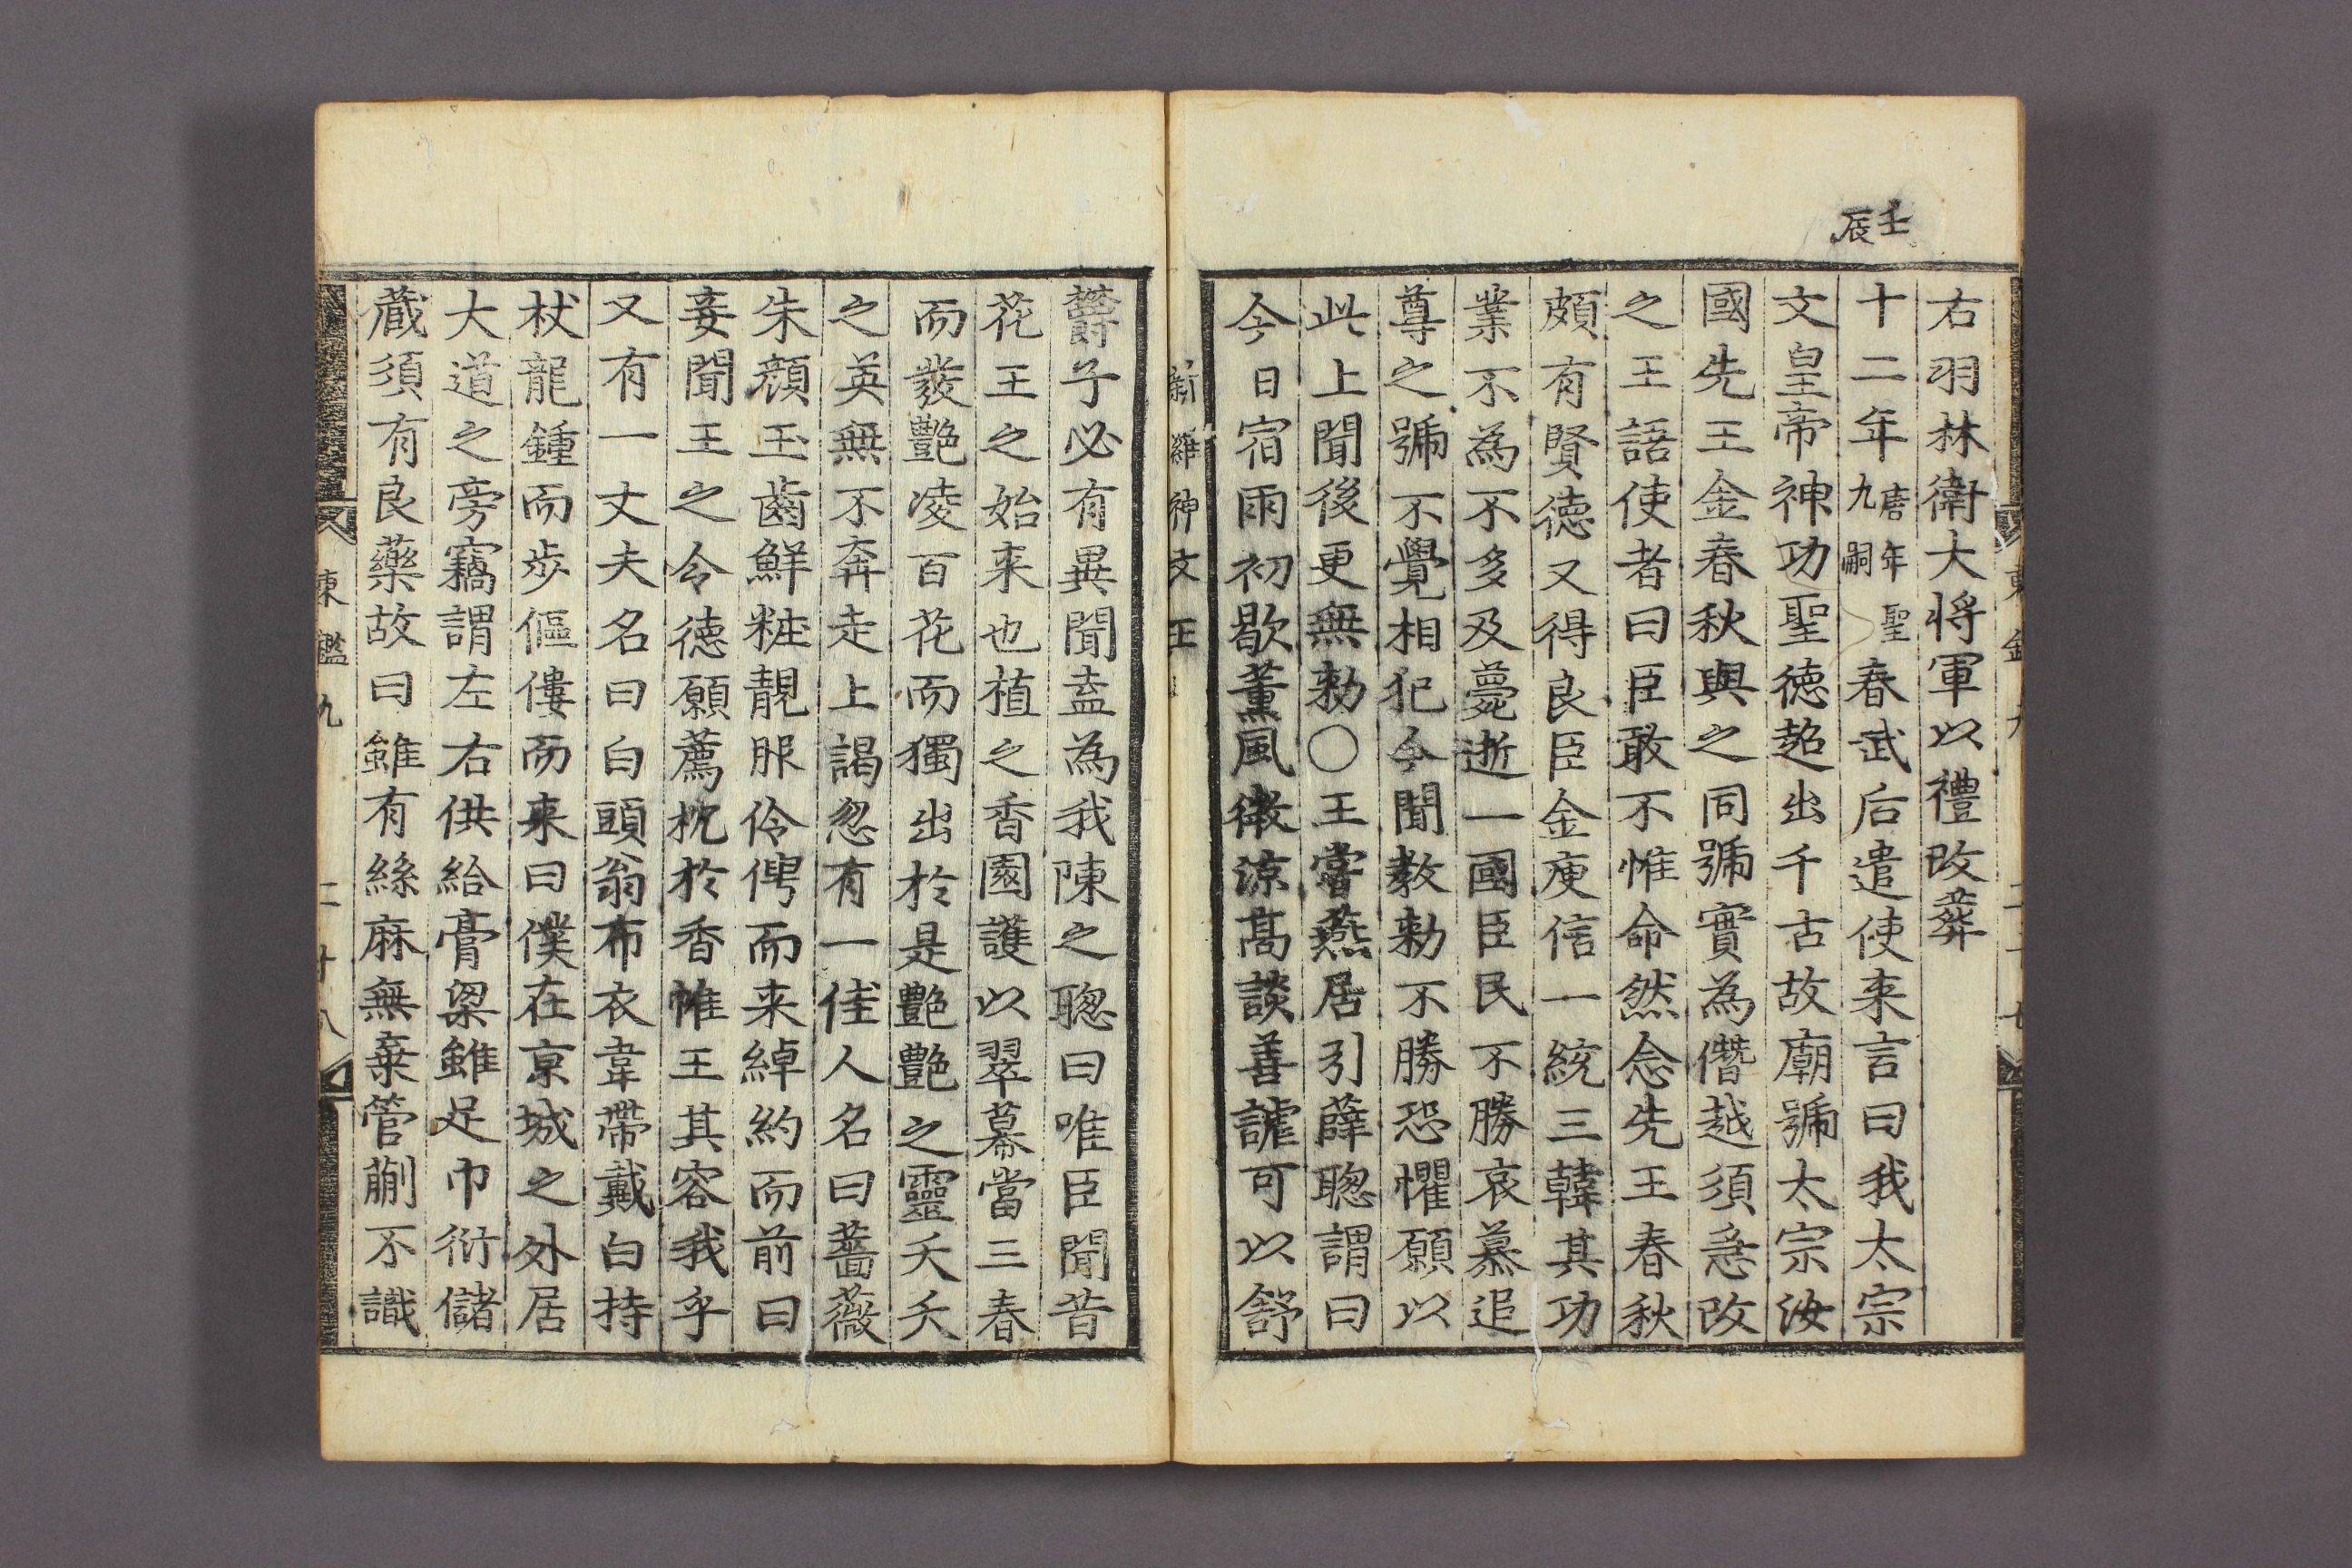 壬辰
右羽林衛大将軍以禮改葬
十二年唐嗣聖九年春武后遣使来言曰我太宗
文皇帝神功聖德超出千古故廟號太宗汝
國先王金春秋與之同號實為僭越須急改
之王語使者曰臣敢不惟命然念先王春秋
頗有賢德又得良臣金庾信一統三韓其功
業不為不多及薨逝一國臣民不勝哀慕追
尊之號不覺相犯今聞教勑不勝恐懼願以
此上聞後更無勑〇王嘗燕居引薛聰謂曰
今日宿雨初歇薰風微涼髙談善謔可以舒
新羅神文王
欝子必有異聞盍為我陳之聰曰唯臣聞昔
花王之始来也植之香園護以翠幕當三春
而發艶凌百花而獨出於是艶艶之靈夭夭
之英無不奔走上謁忽有一佳人名曰薔薇
朱顔玉齒鮮粧靚服伶俜而来綽約而前曰
妾聞王之令德願薦枕於香帷王其容我乎
又有一丈夫名曰白頭翁布衣韋帶戴白持
杖龍鍾而步傴僂而来曰僕在京城之外居
大道之旁竊謂左右供給膏粱雖足巾衍儲
蔵須有良藥故曰雖有絲麻無棄菅蒯不識
東鑑九 二十八